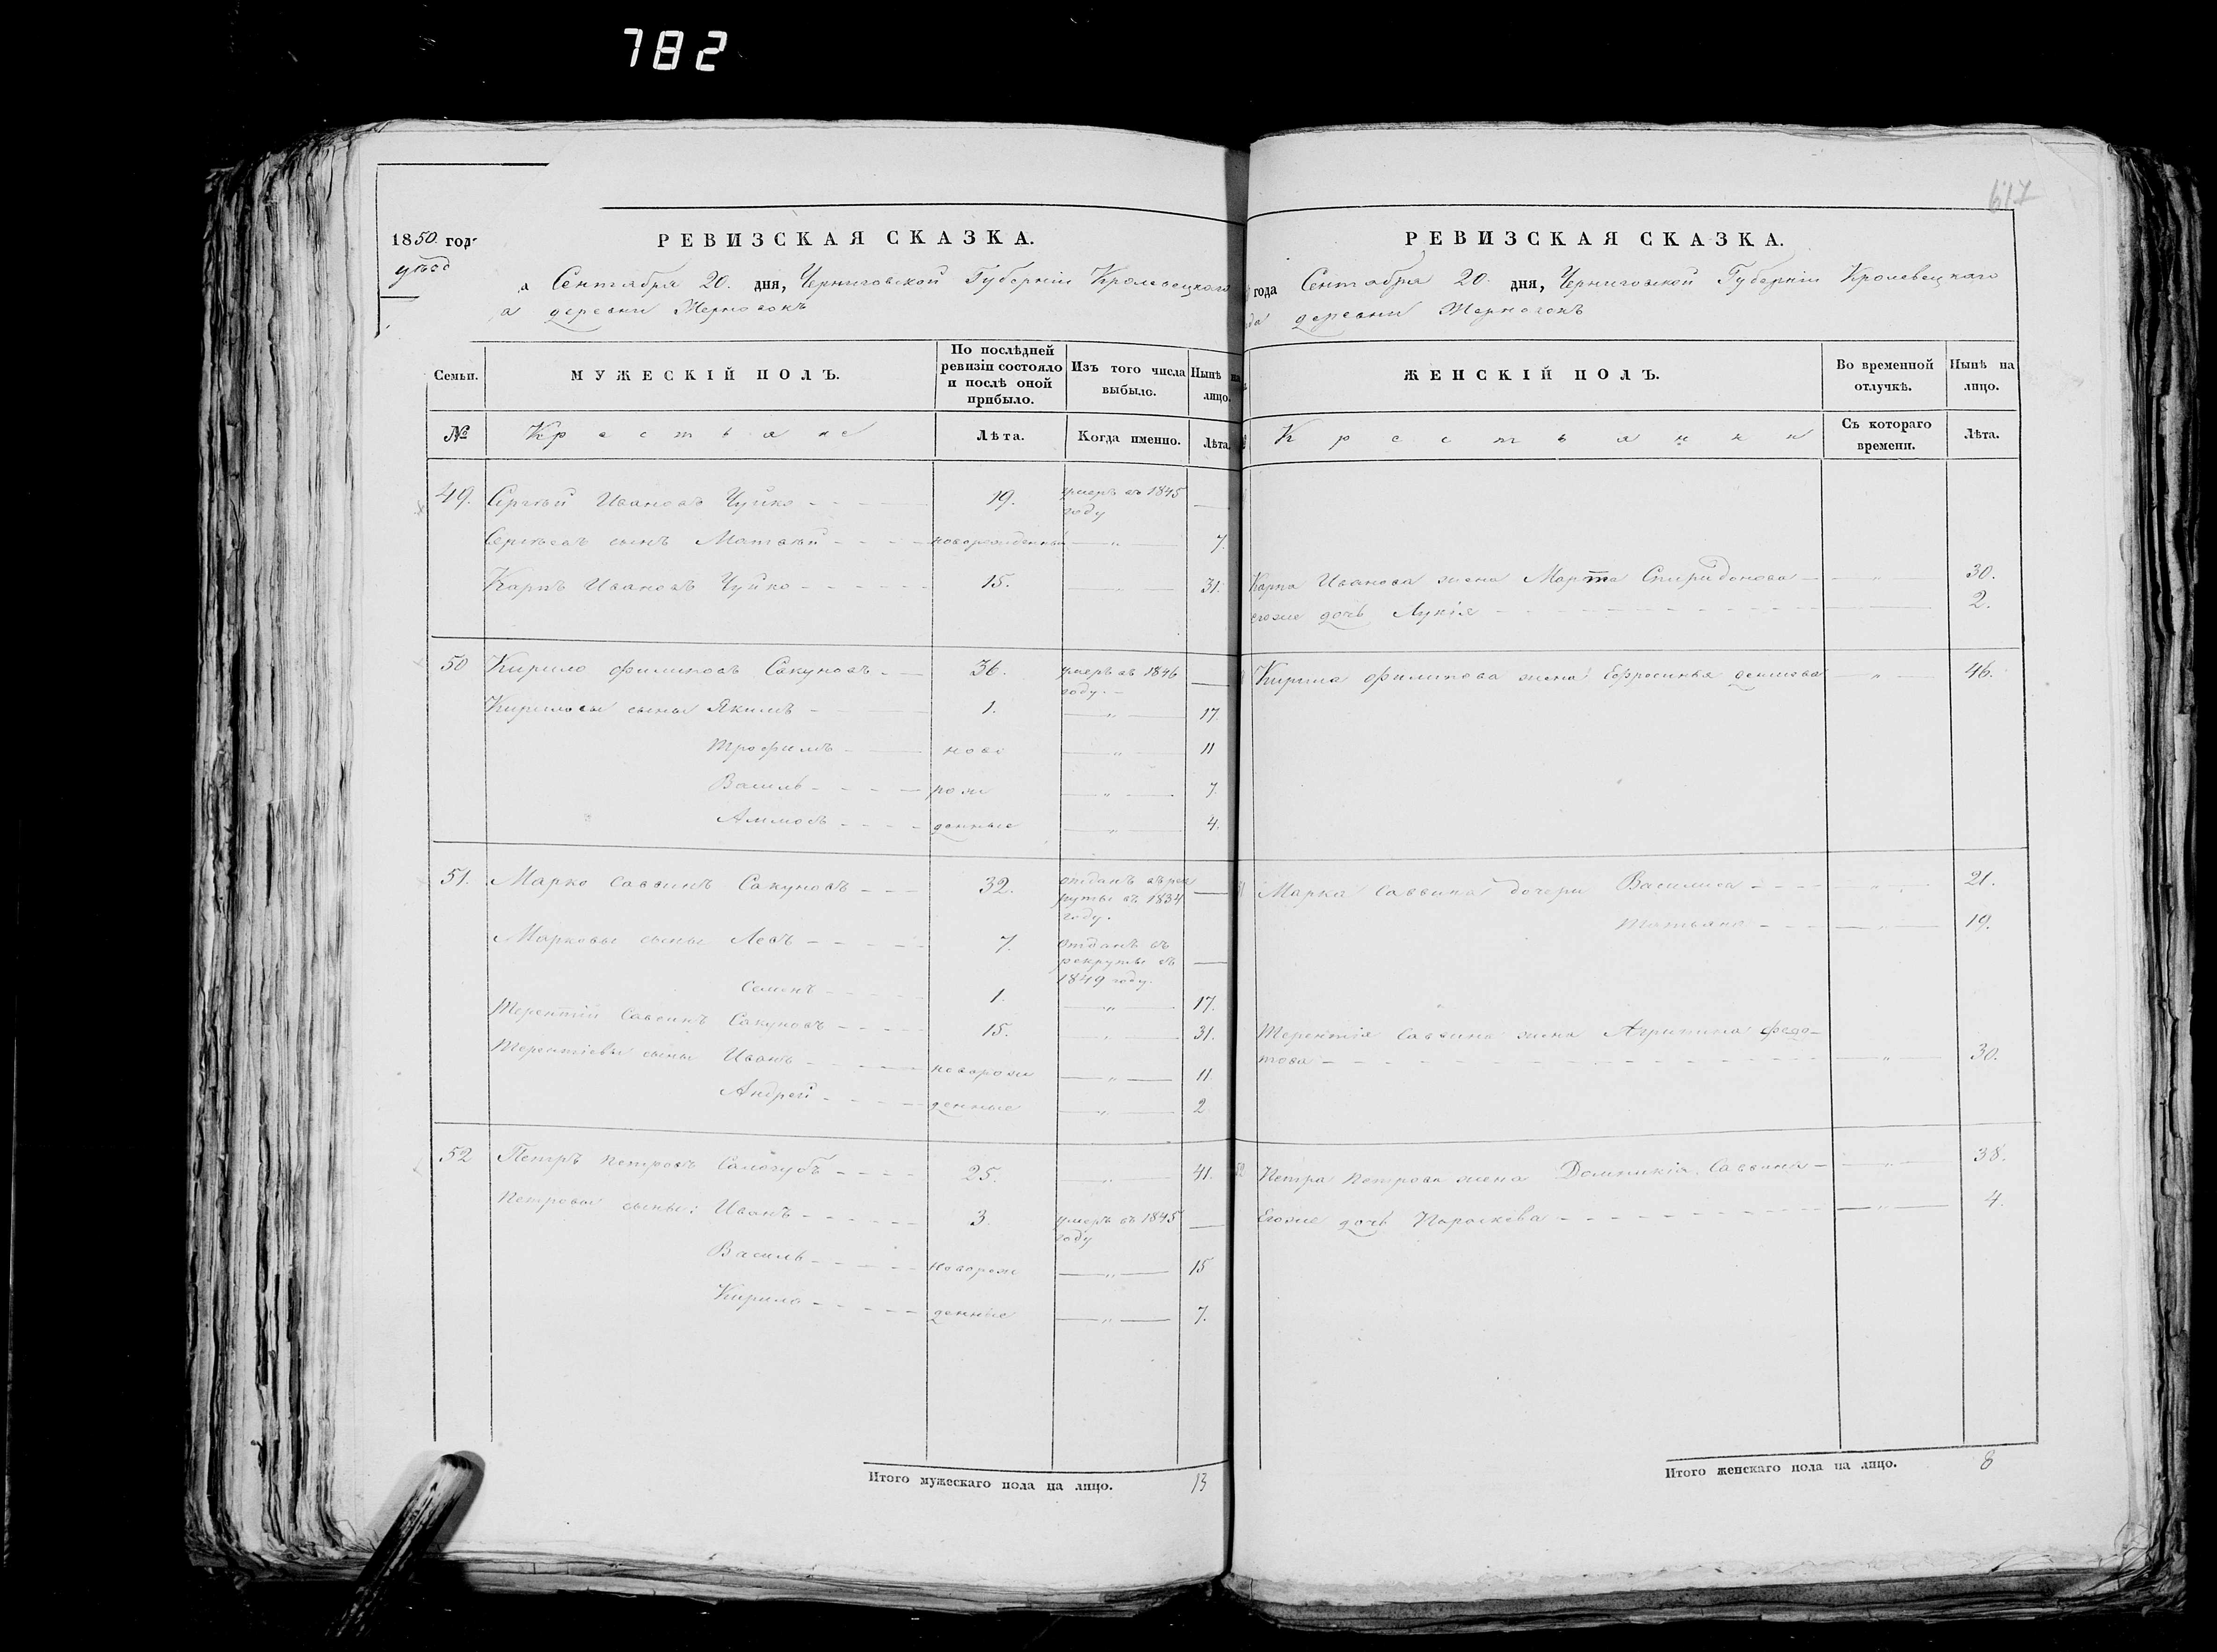 782
617
1850. год
уѣзд
РЕВИЗСКАЯ СКАЗКА.
а Сентября 20. дня, Черниговской Губерніи Кролевецкаго
а деревни Жерновокъ
Семьи.
МУЖЕСКІЙ ПОЛЪ.
По послѣдней ревизіи состояло и послѣ оной прибыло.
Изъ того числа выбыло.
Нынѣ на лицо.
№
Крестьяне
Лѣта.
Когда именно.
Лѣта.
49. Сергѣй Ивановъ Чуйко 19. умеръ въ 1845 году —
Сергѣевъ сынъ Матвѣй новорожденный — " — 7.
Карпъ Ивановъ Чуйко 15. — " — 31.
50 Кирило Филиповъ Сакуновъ 36. умеръ въ 1846 году. —
Кириловы сыны Якимъ 1. — " — 17.
Трофимъ ново — " — 11
Василь рож — " — 7.
Аммосъ денные — " — 4.
51. Марко Саввинъ Сакуновъ 32. отданъ въ рекруты въ 1834 году. —
Марковы сыны Левъ 7. отданъ въ рекруты въ 1849 году. —
Семенъ 1. — " — 17.
Терентій Саввинъ Сакуновъ 15. — " — 31.
Терентіевы сыны Иванъ новорож — " — 11
Андрей денные — " — 2
52 Петръ Петровъ Самогубъ 25. — " — 41.
Петровы сыны: Иванъ 3. умеръ въ 1845 году —
Василь новорож — " — 15
Кирило денные — " — 7.
Итого мужескаго пола на лицо. 13
РЕВИЗСКАЯ СКАЗКА.
года Сентября 20. дня, Черниговской Губерніи Кролевецкаго
да деревни Жерновокъ
ЖЕНСКІЙ ПОЛЪ.
Во временной отлучкѣ.
Нынѣ на лицо.
Крестьянки
Съ котораго времени.
Лѣта.
Карпа Иванова жена Марта Спиридонова — " — 30.
егоже дочь Лукія 2.
Кирила Филипова жена Ефросинья — " — 46.
51 Марка Саввина дочери Василиса — " — 21.
Татьяна — " — 19.
Терентія Саввина жена Агрипина Федо-
това — " — 30.
52 Петра Петрова жена Домникія Саввина — " — 38.
Егоже дочь Параскева — " — 4.
Итого женскаго пола на лицо. 8